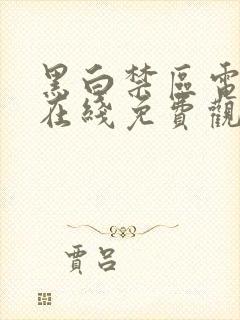 黑白禁區電
在綫免費觀
賈呂